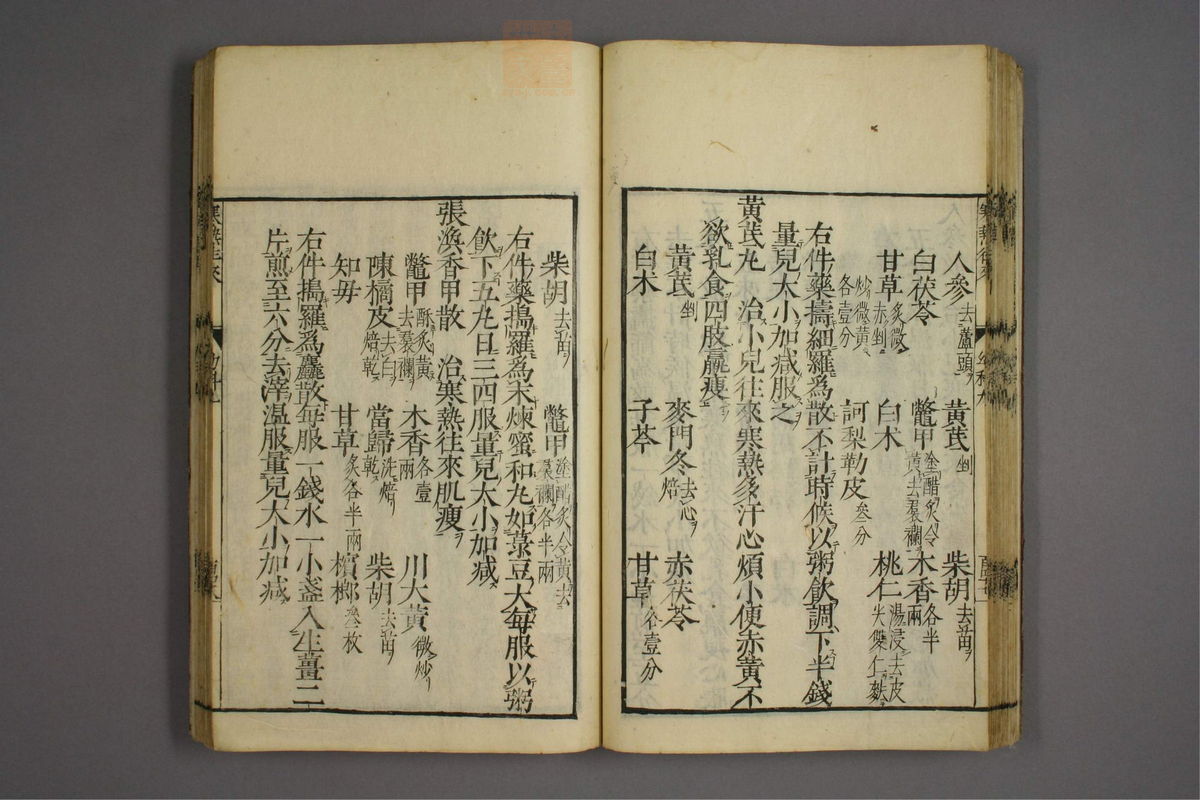 人參去蘆頭ヲ 黃芪剉 柴胡去苗ヲ
白茯苓 鼈甲塗醋炙令黃去裙襴ヲ 木香各半兩
甘草炙微赤剉 白朮 桃仁湯浸去皮尖雙仁麩
炒微黃各壹分 訶梨勒皮叁分
右件藥擣細羅爲散不計時候以粥飲調下半錢
量兒大小加減服之
黃芪丸 治小兒往來寒熱多汗心煩小便赤黃不
欲乳食四肢羸瘦
黃芪剉 麥門冬去心焙 赤茯苓
白朮 子芩 甘草各壹分
柴胡去苗ヲ 鼈甲塗醋炙令黃去裙襴各半兩
右件藥搗羅爲末煉蜜和丸如菉豆大每服以粥
飲下五丸日三四服量兒大小加減
張渙香甲散 治寒熱往來肌瘦
鼈甲酥炙黃去裙襴 木香各壹兩 川大黃微炒
陳橘皮去白焙乾 當歸洗焙乾 柴胡去苗
知母 甘草炙各半兩 檳榔叁枚
右件搗羅爲麤散每服一錢水一小盞入生薑二
片煎至六分去滓温服量兒大小加減